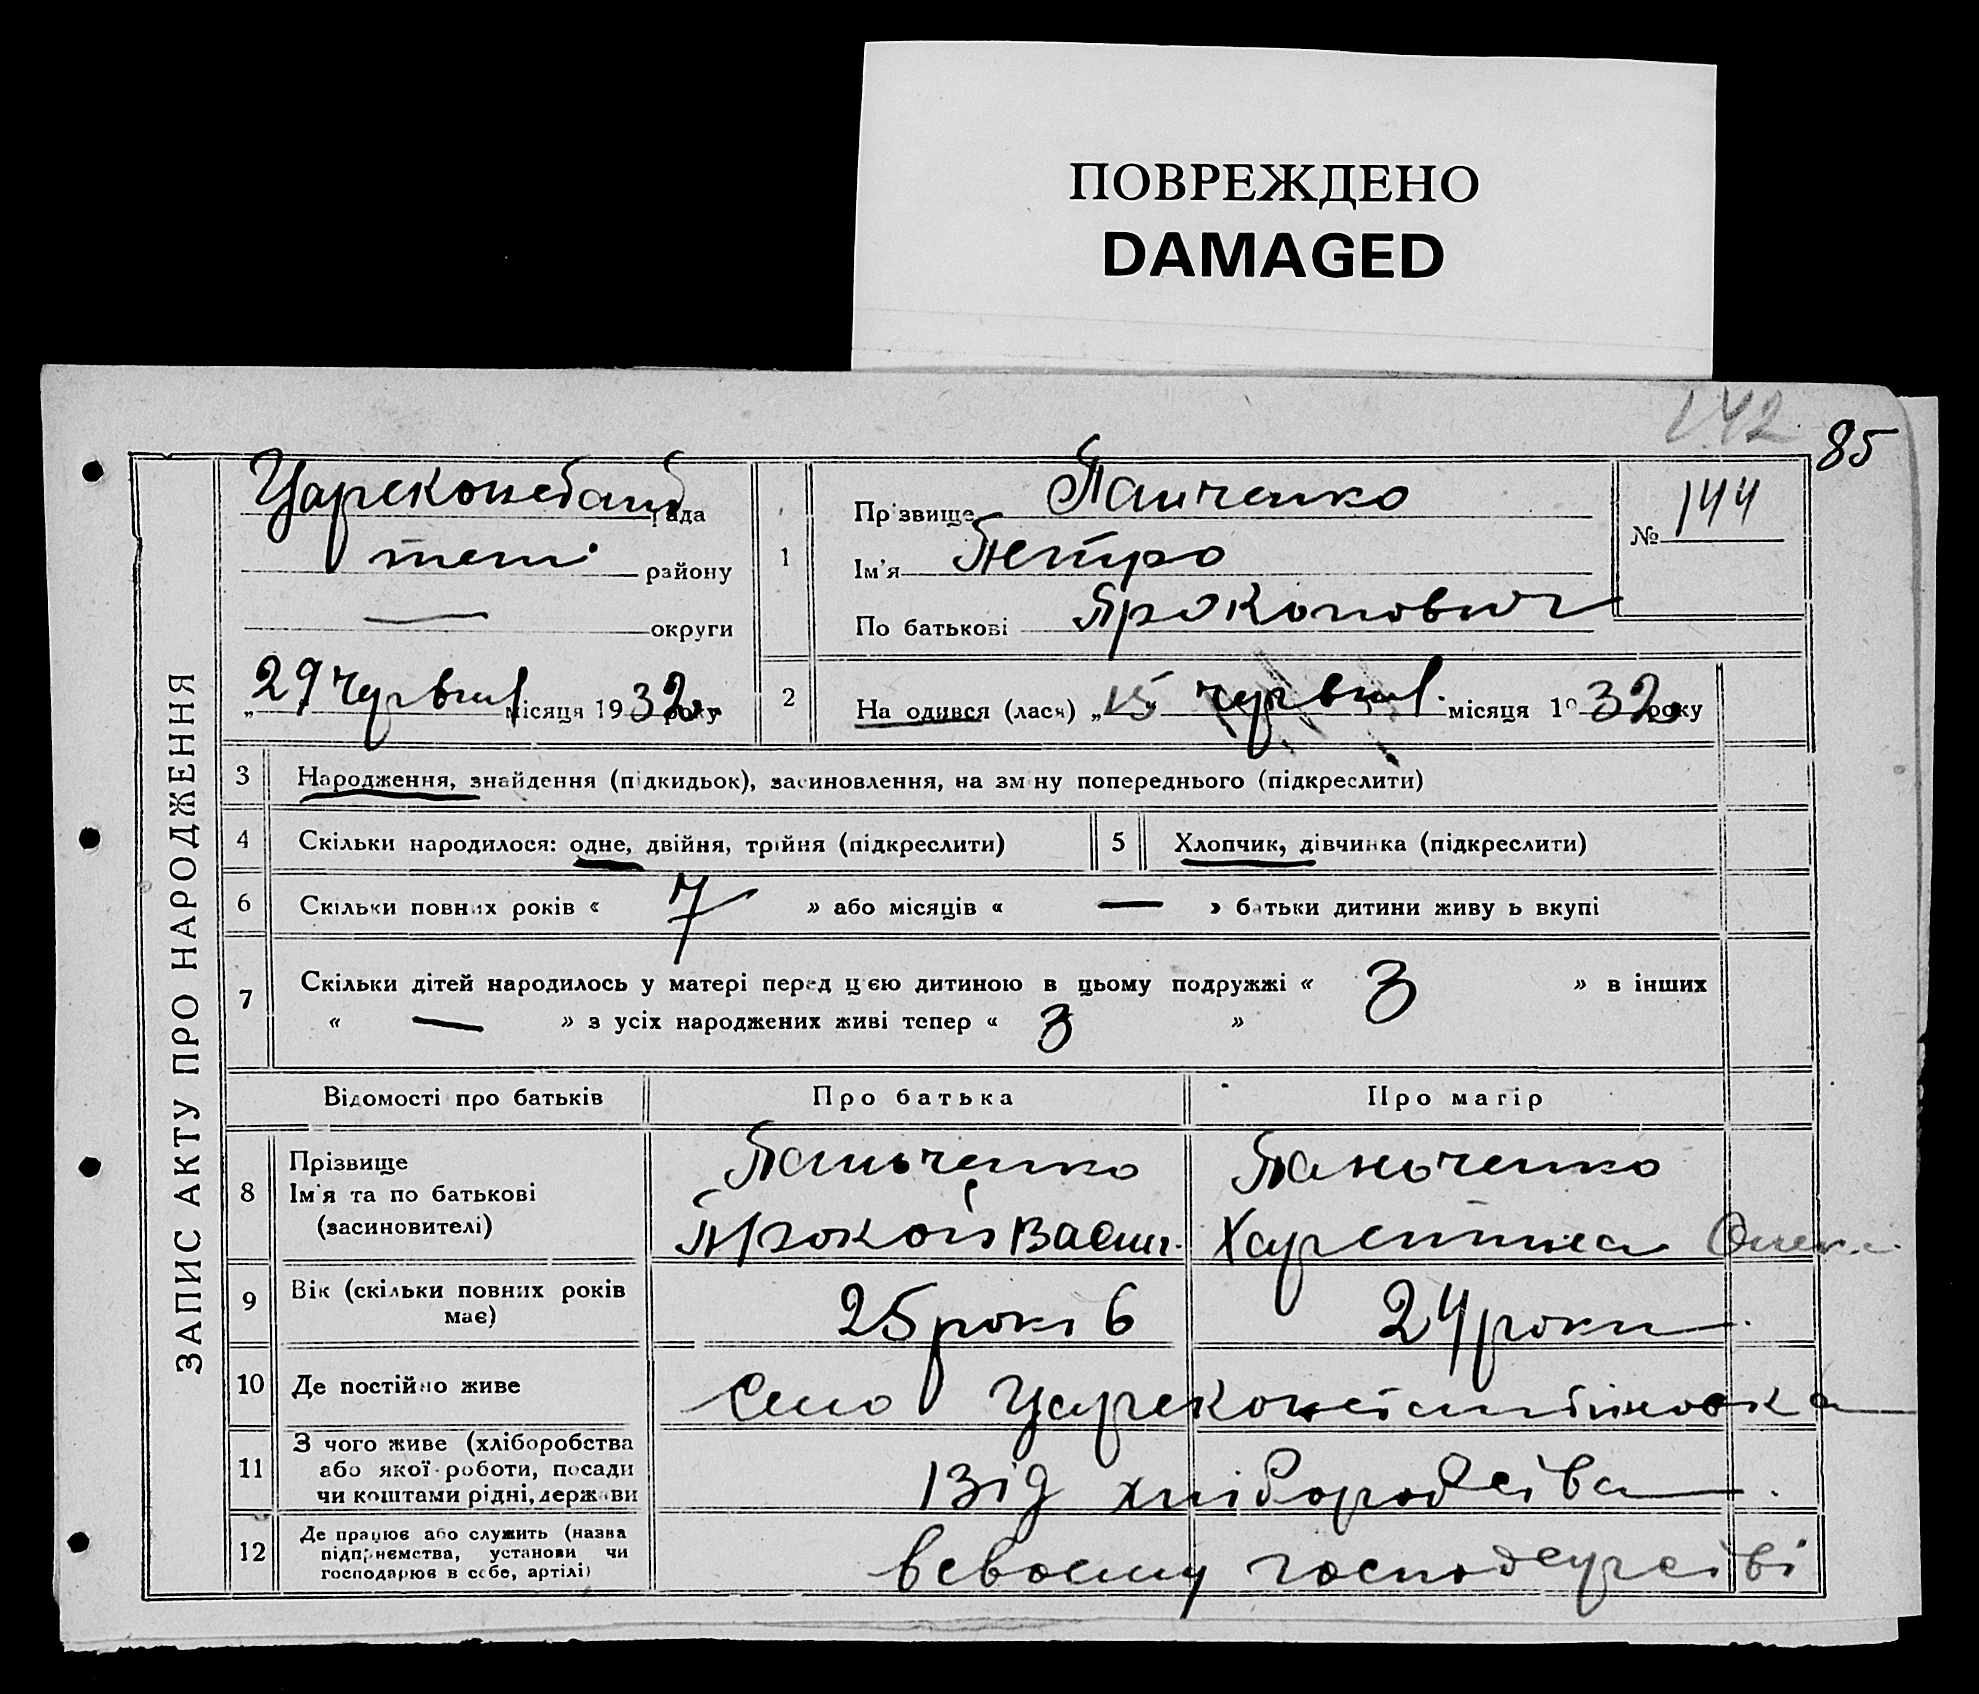 ПОВРЕЖДЕНО
DAMAGED
142 85
ЗАПИС АКТУ ПРО НАРОДЖЕННЯ
рада
району
— округи
„29 червня місяця 1932 року
1
Прізвище Панченко
Ім'я Петро
По батькові Прокопович
№ 144
2 На одився (лася) „15" червня місяця 1932 року
3 Народження, знайдення (підкидьок), засиновлення, на зміну попереднього (підкреслити)
4 Скільки народилося: одне, двійня, трійня (підкреслити)
5 Хлопчик, дівчинка (підкреслити)
6 Скільки повних років « 7 » або місяців « — » батьки дитини живу ь вкупі
7 Скільки дітей народилось у матері перед цією дитиною в цьому подружжі « 3 » в інших
« — » з усіх народжених живі тепер « 3 »
Відомості про батьків Про батька Про матір
8 Прізвище
Ім'я та по батькові
(засиновителі)
Паньченко
Прокоп Васил.
Паньченко
Харетина
9 Вік (скільки повних років
має)
25 років 24 роки
10 Де постійно живе Село Цареконстантіновка
11 З чого живе (хліборобства
або якої роботи, посади
чи коштами рідні, держави
Від хліборобства
12 Де працює або служить (назва
підприємства, установи чи
господарює в себе, артілі)
всвоему господарстві